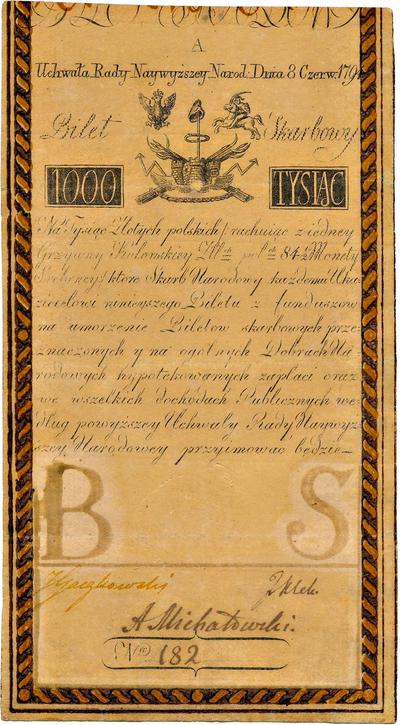 A
Uchwała Rady Naywyższey Narod: Dnia 8 Czerw. 1794
Bilet Skarbowy
1000 TYSIĄC
Na Tysiąc Złotych polskich/rachuiąc z iedney
Grzywny Kolonskiey Zł pol 84½ Monety
Srebrney/które Skarb Narodowy każdemu Uka-
zicielowi ninieyszego Biletu z funduszów
na umorzenie Biletów skarbowych prze-
znaczonych y na ogólnych Dobrach Na-
rodowych hypotekowanych zapłaci oraz
we wszelkich dochodach Publicznych we-
dług powyższey Uchwały Rady Naywyż-
szey Narodowey przyjmować będzie
B S
A Michałowski.
N(ro) 182